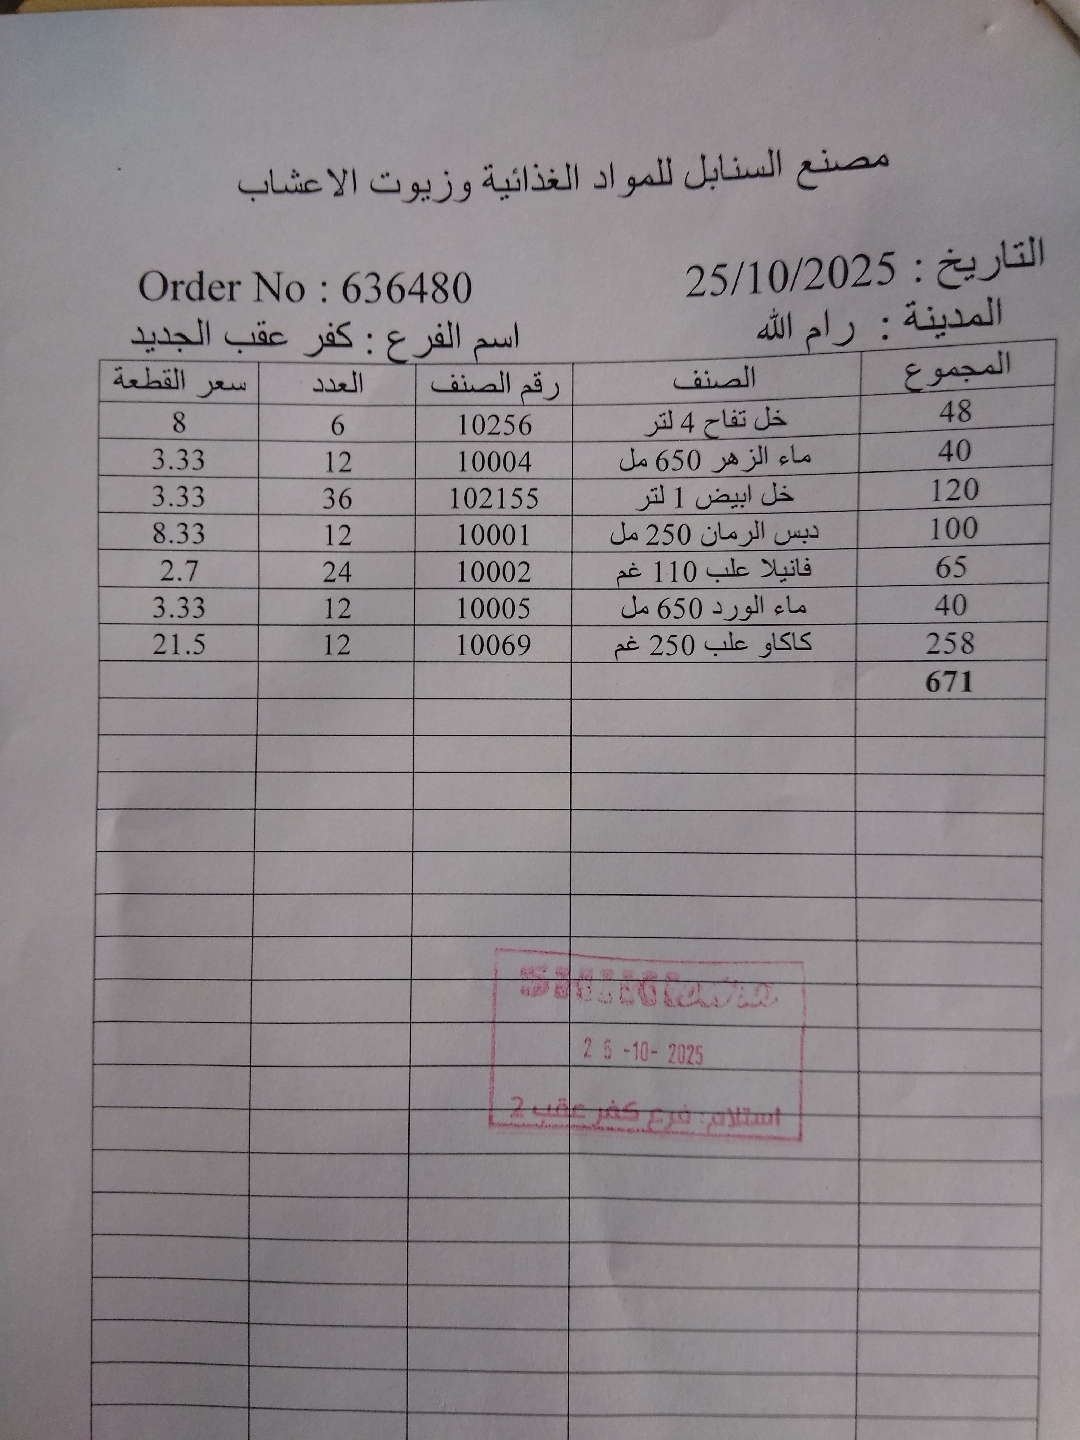 مصنع السنابل للمواد الغذائية وزيوت الاعشاب
التاريخ : 25/10/2025 Order No : 636480
المدينة : رام الله اسم الفرع : كفر عقب الجديد
المجموع الصنف رقم الصنف العدد سعر القطعة
48 خل تفاح 4 لتر 10256 6 8
40 ماء الزهر 650 مل 10004 12 3.33
120 خل ابيض 1 لتر 102155 36 3.33
100 دبس الرمان 250 مل 10001 12 8.33
65 فانيلا علب 110 غم 10002 24 2.7
40 ماء الورد 650 مل 10005 12 3.33
258 كاكاو علب 250 غم 10069 12 21.5
671
25 -10- 2025
استلام: فرع كفر عقب 2